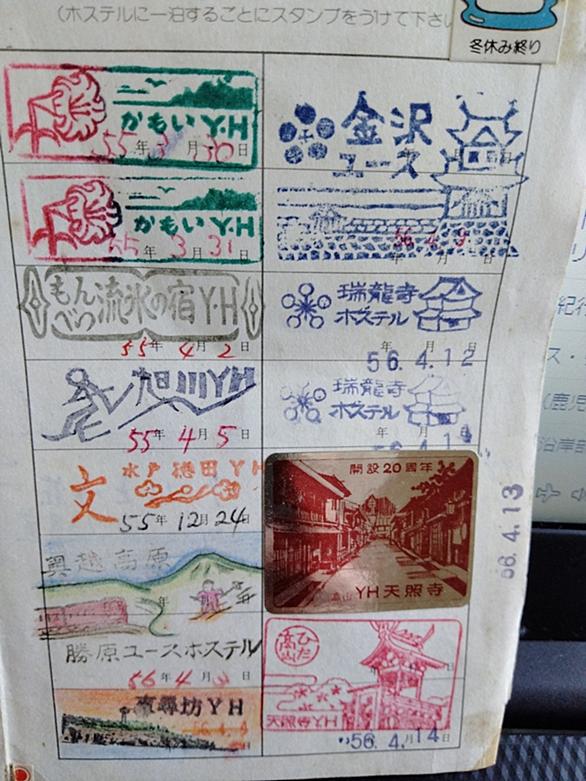 (ホステルに一泊するごとにスタンプをうけて下さい
冬休み終り
YH
55年3月30日
YH
55年3月31日
もんべつ流氷の宿YH
55年4月2日
旭川YH
55年4月5日
水戸徳田YH
文
55年12月24日
奥越高原
年
勝原ユースホステル
56年4月日
東尋坊YH
金沢
ユース
年月日
瑞龍寺
ホステル
年月日
56.4.12
瑞龍寺
ホステル
年月日
56.4.13
開設20周年
高山
YH天照寺
ひだ
高山
天照寺YH
56.4.14